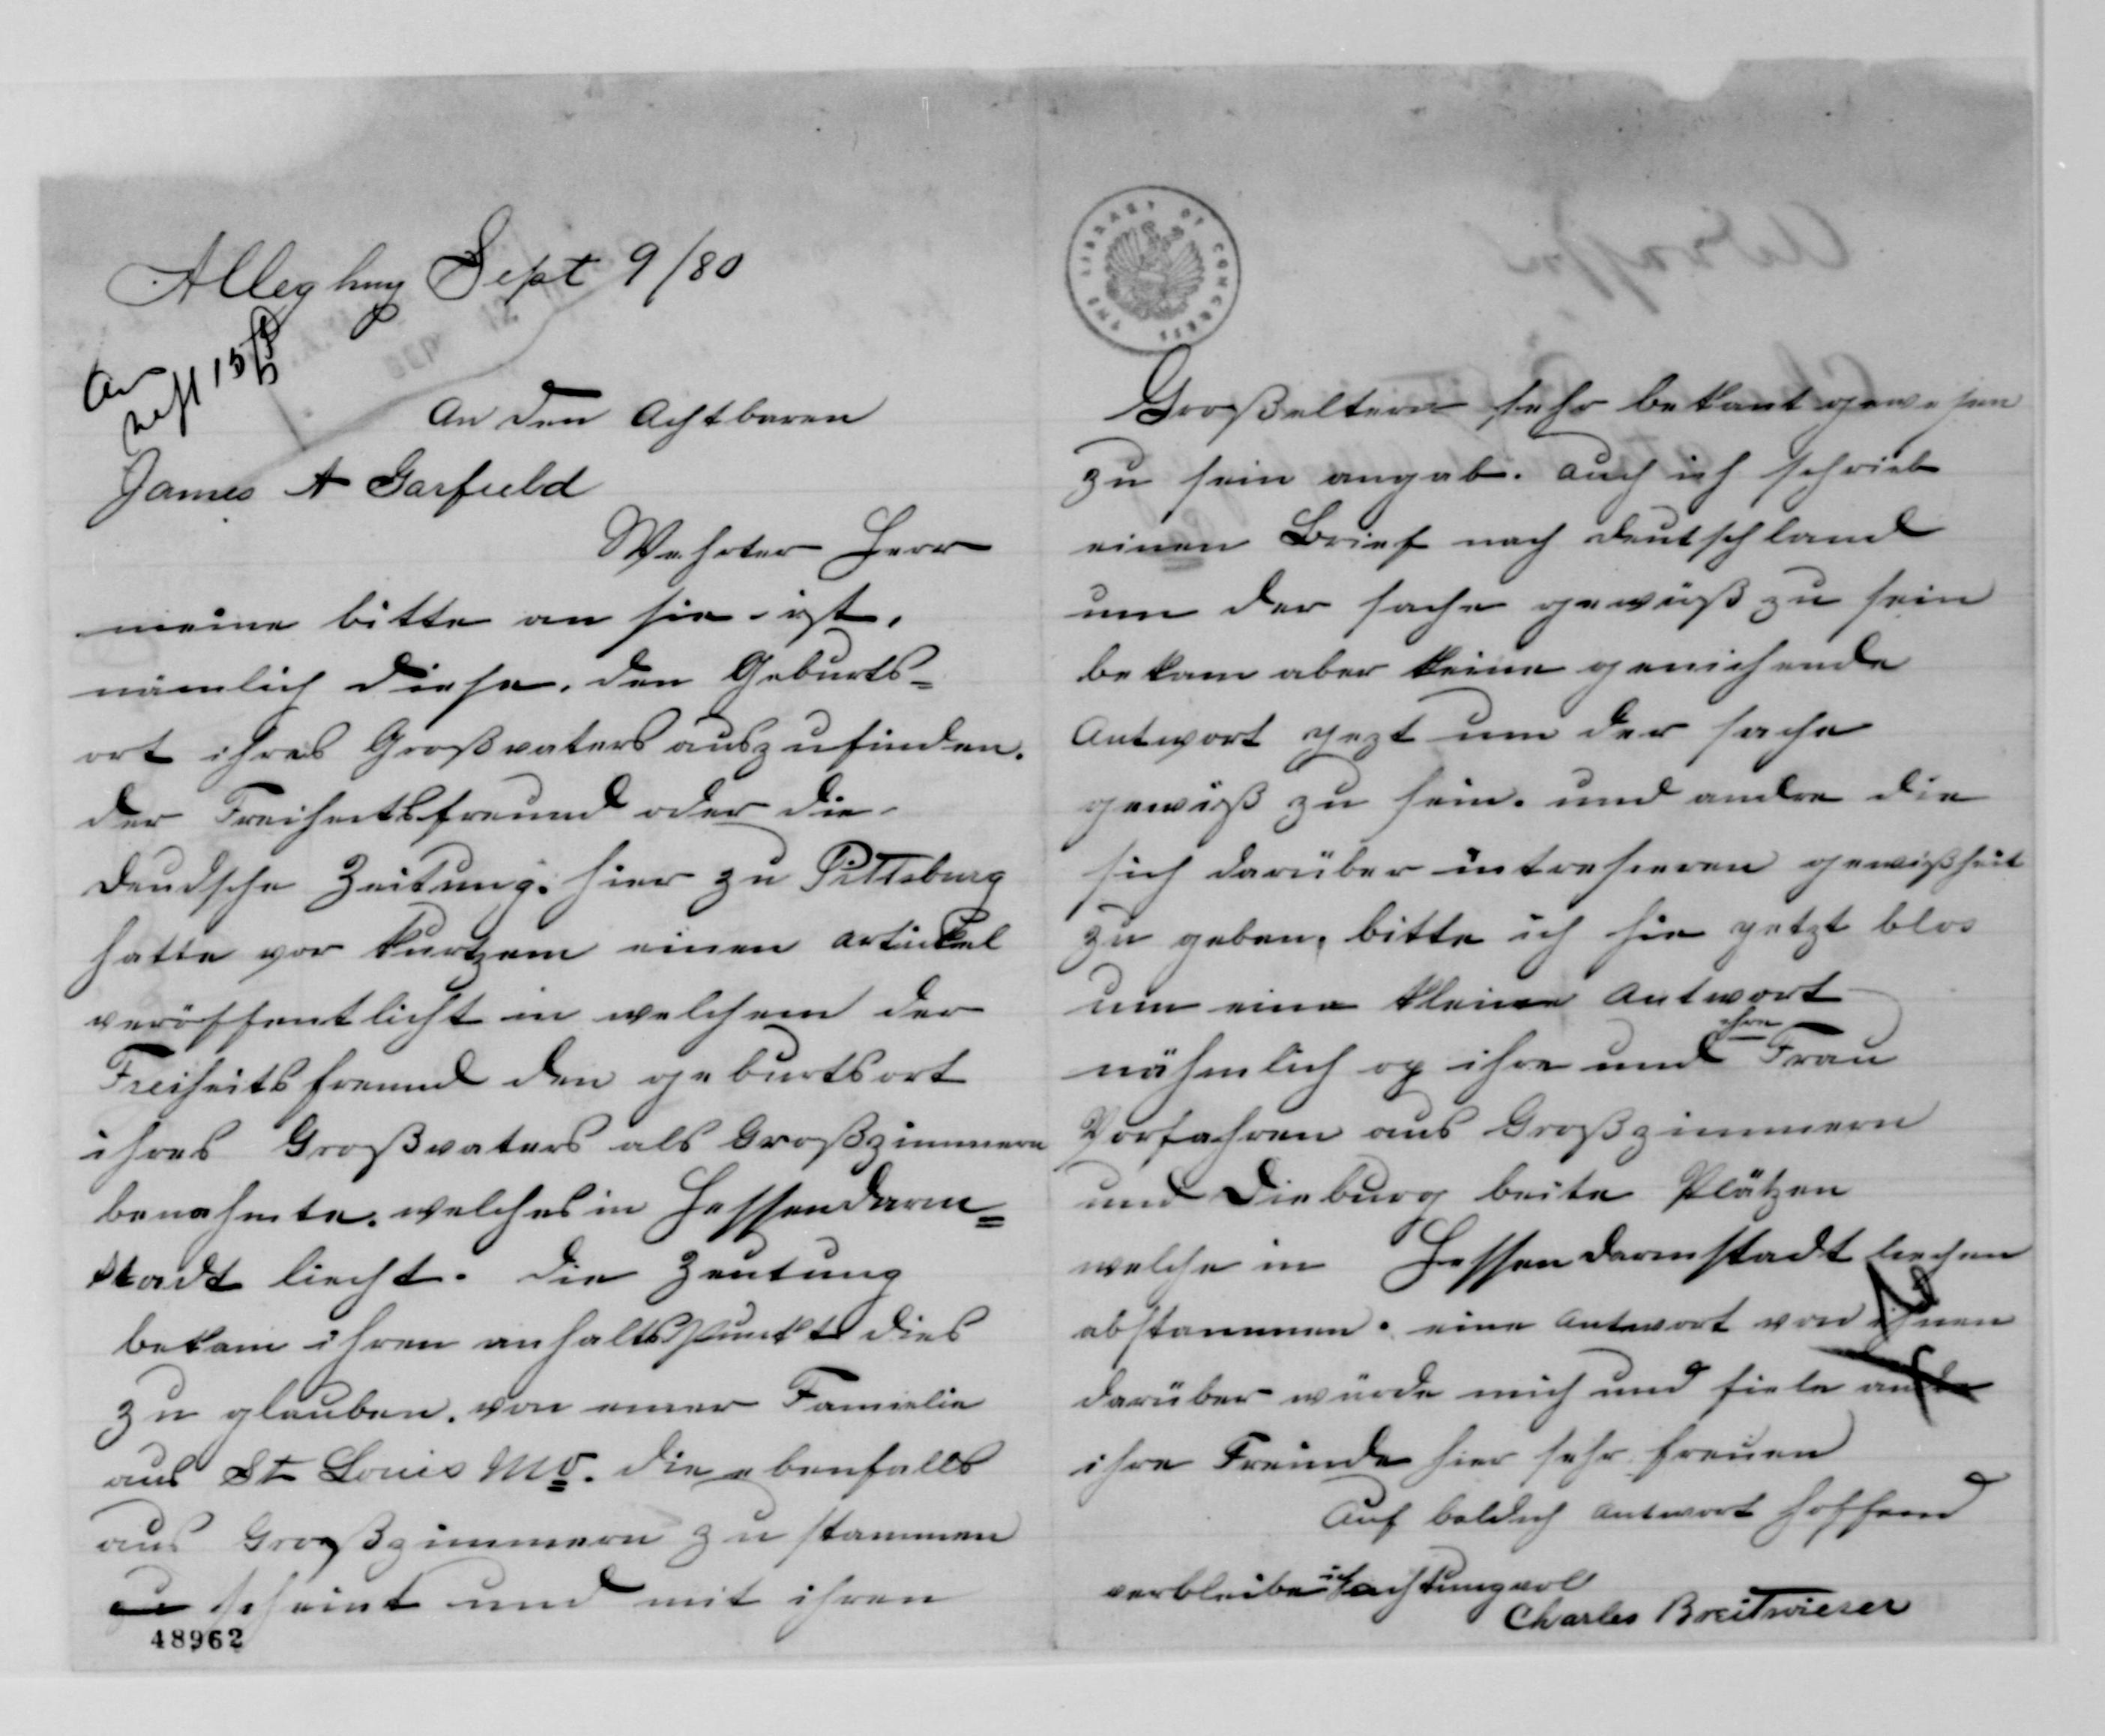 Alleghny Sept 9/80
An
Sept 15/80
An den Achtbaren
James A Garfield
Wehrter Herr
meine bitte an sie ist,
nämlich diese, den Geburts=
ort ihres Großvaters auszufinden.
der Freiheitsfreund oder die
deudsche Zeitung. hier zu Pittsburg
hatte vor kurtzem einen artickel
veröffentlicht in welchem der
Freiheitsfreund den geburtsort
ihres Großvaters als Großzimmern
benahmte. welches in Hessendarm=
stadt liecht. die Zeutung
bekam ihren anhaltspunkt dies
zu glauben, von einer Famielie
aus St Louis Mo. die ebenfalls
aus Großzimmern zu stammen
scheint und mit ihren
48962
THE LIBRARY OF CONGRESS
Großeltern sehr bekant gewesen
zu sein angab. auch ich schrieb
einen Brief nach deutschland
um der sache gewüß zu sein
bekam aber keine genichende
Antwort jezt um der sache
gewüß zu sein. und andre die
sich darüber intresieren gewißheit
zu geben, bitte ich sie jetzt blos
um eine kleine Antwort
nähmlich op ihre und ihre Frau
Vorfahren aus Großzimmern
und Dieburg beite Plätzen
welche in Hessendarmstadt liechen
abstammen. eine Antwort von ihnen
darüber würde mich und fiele
ihre Freinde hier sehr freuen
Auf baldich Antwort hoffend
verbleibe ich achtungvol
Charles Breitwieser